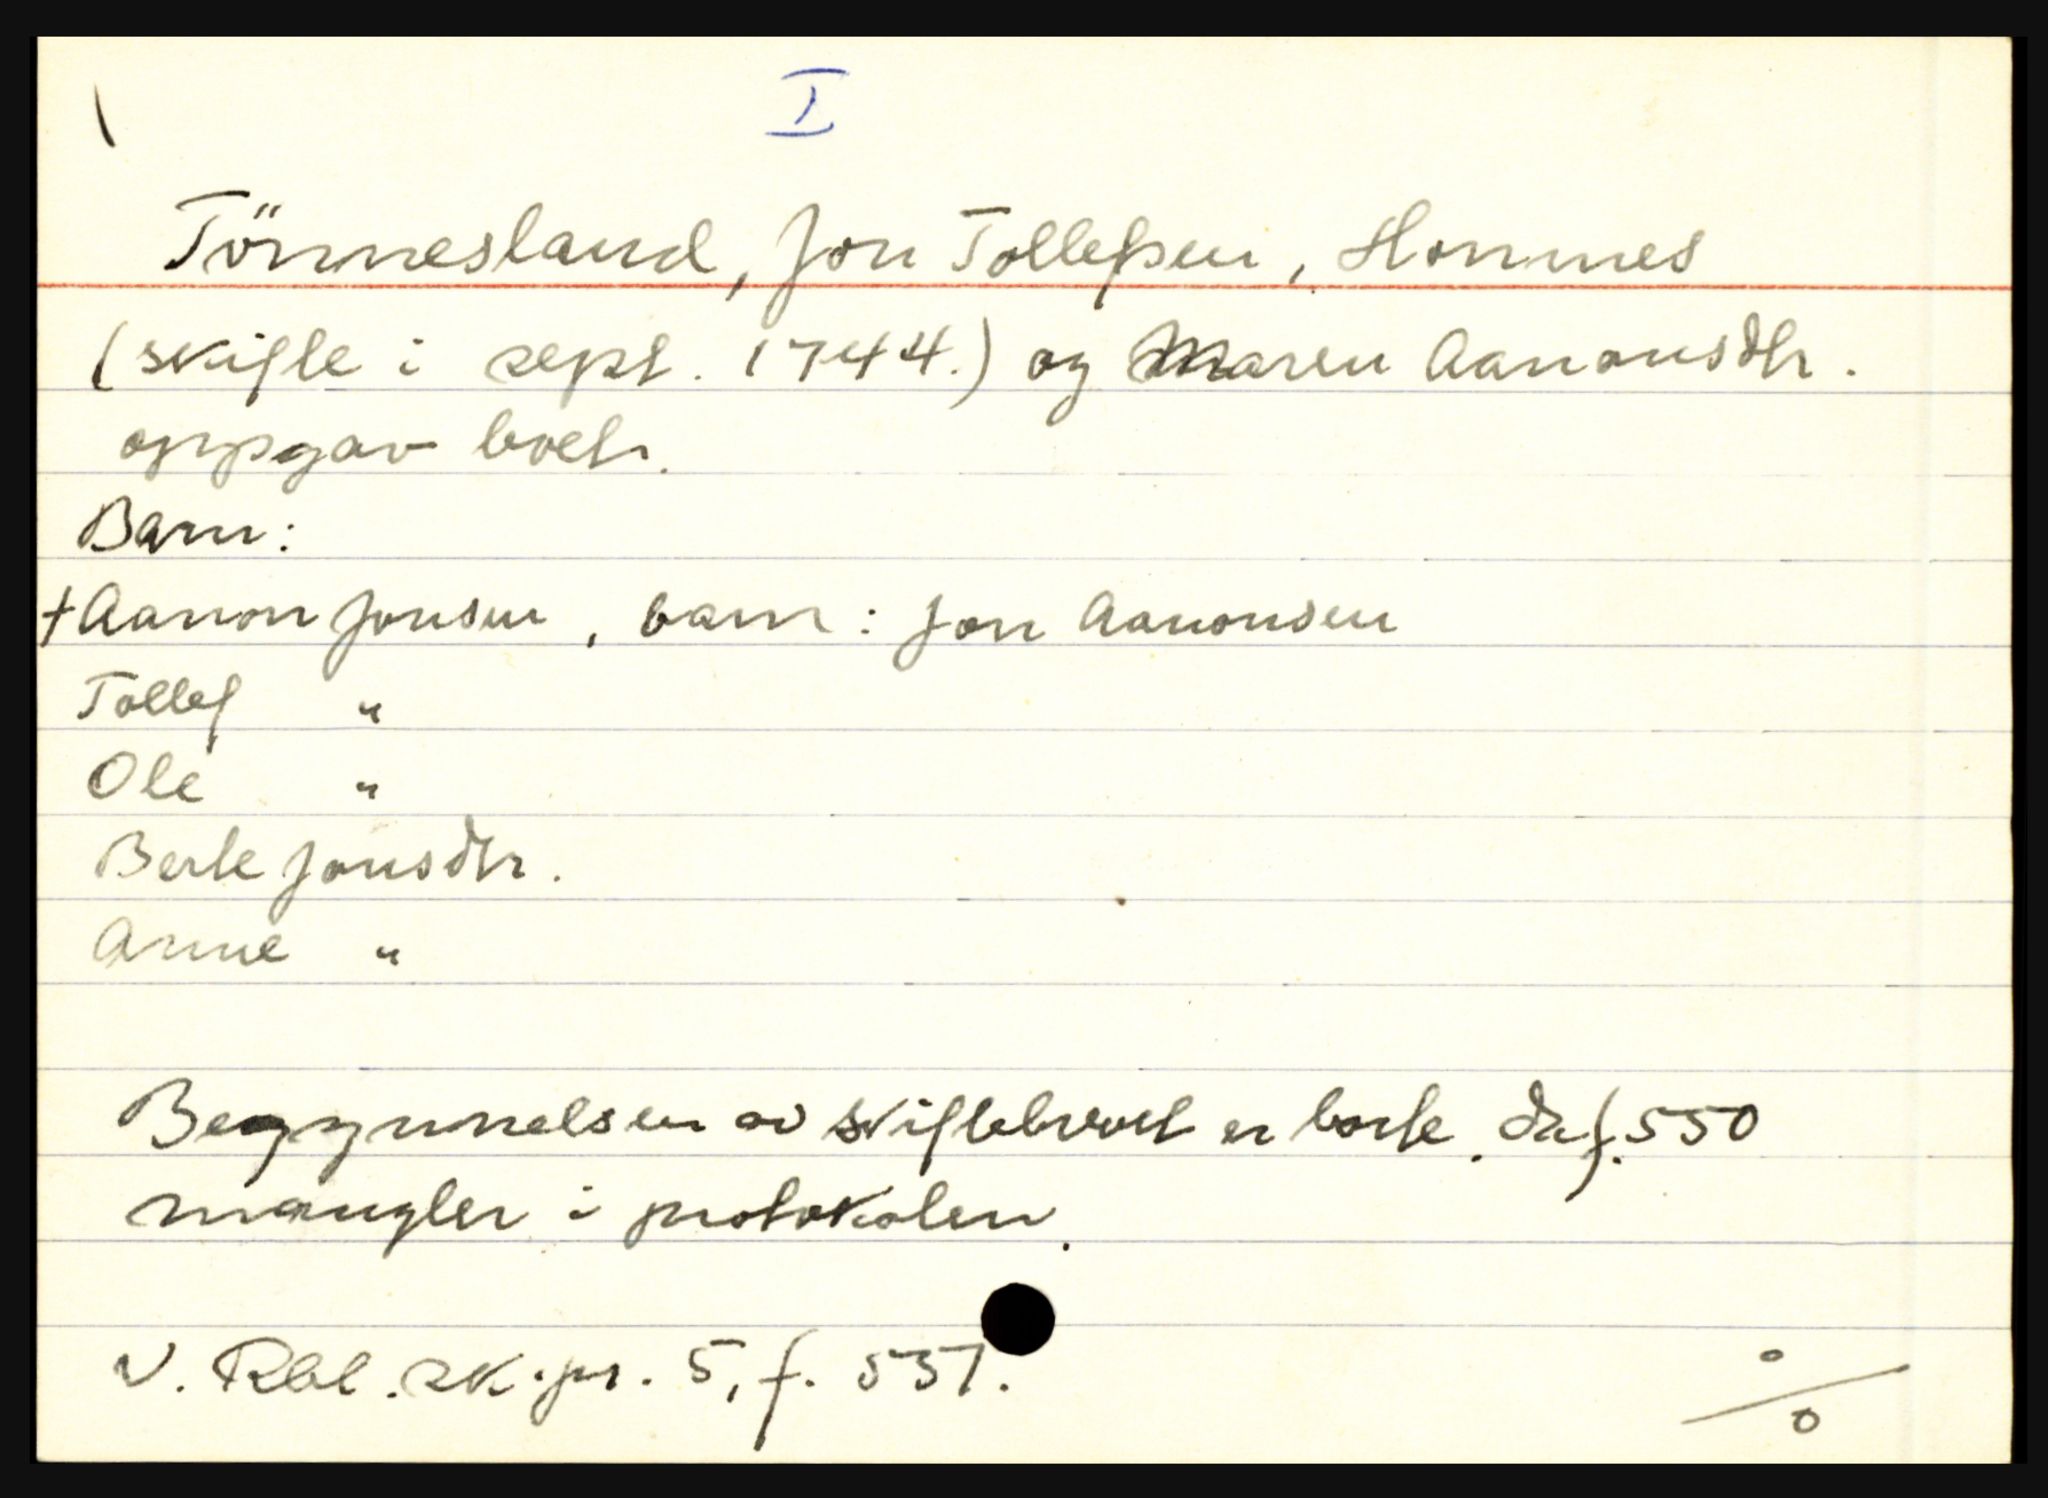 I
Tönnesland, Jon Tollefsen, Hommes
(skifte i sept. 1744.) og Maren Aanonsdtr.
oppgav boet.
Barn:
+ Aanon Jonsen, barn: Jon Aanonsen
Tollef "
Ole "
Berte Jonsdtr.
Anne "
Begynnelsen av skiftebrevet er borte. da f. 550
mangler i protokolen.
V. Rbl. sk.pr. 5, f. 551.
o/o